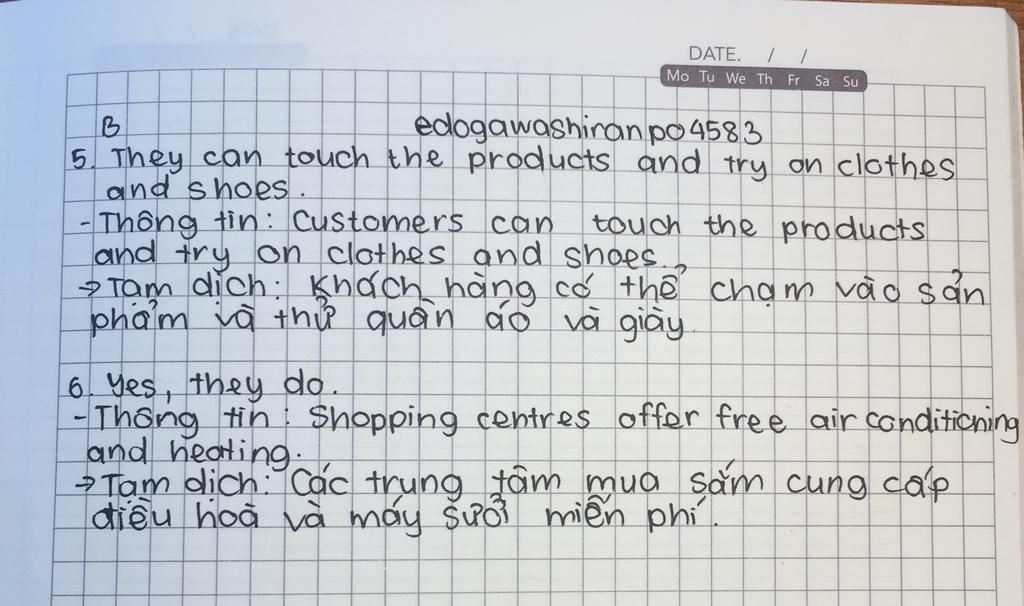 DATE. / /
Mo Tu We Th Fr Sa Su
B edogawashiranpo4583
5. They can touch the products and try on clothes
and shoes.
- Thông tin: Customers can touch the products
and try on clothes and shoes.
→ Tạm dịch: Khách hàng có thể chạm vào sản
phẩm và thử quần áo và giày.
6. Yes, they do.
- Thông tin: Shopping centres offer free air conditioning
and heating.
→ Tạm dịch: Các trung tâm mua sắm cung cấp
điều hoà và máy sưởi miễn phí.